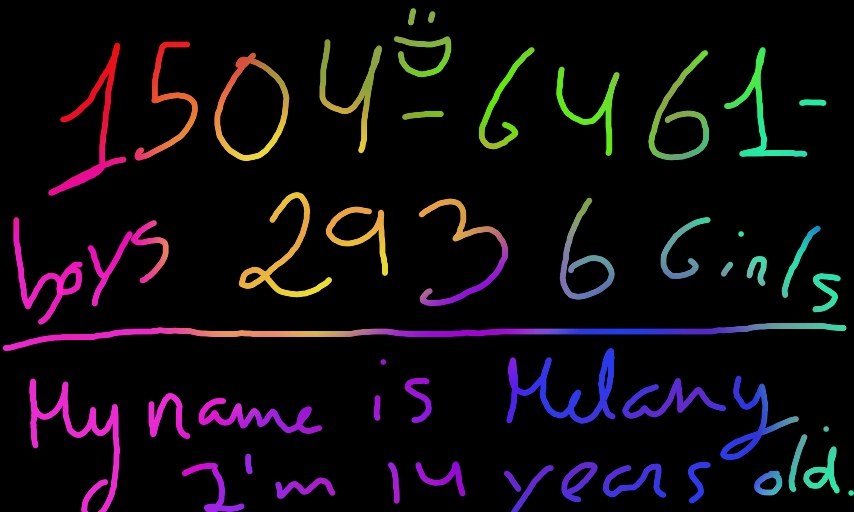 1504 - 6461 -
boys 2936 Girl/s
My name is Melany
I'm 14 years old.